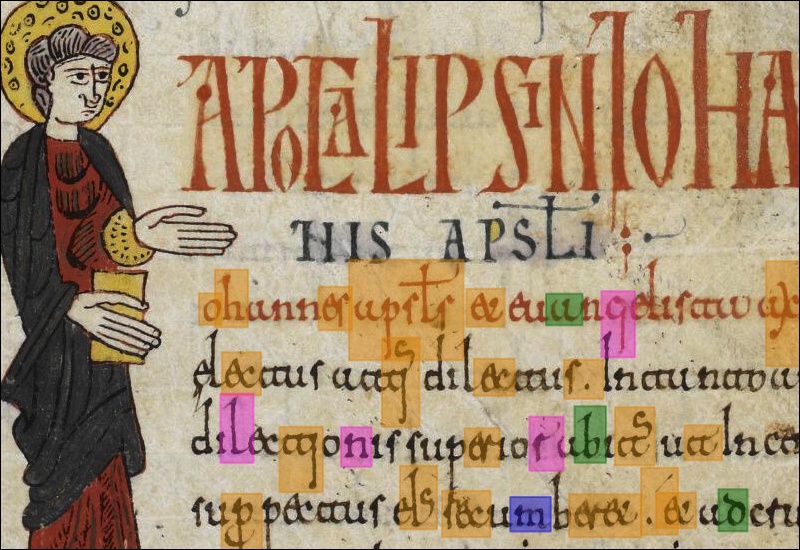 APOCALIPSIN IOHA
NIS APSTLI
ohannes apstls et euangelista a x
electus atq dilectus. In tanto a
dilectionis superior abitus ut In ce
sup pectus eis recumberet. et ad cru